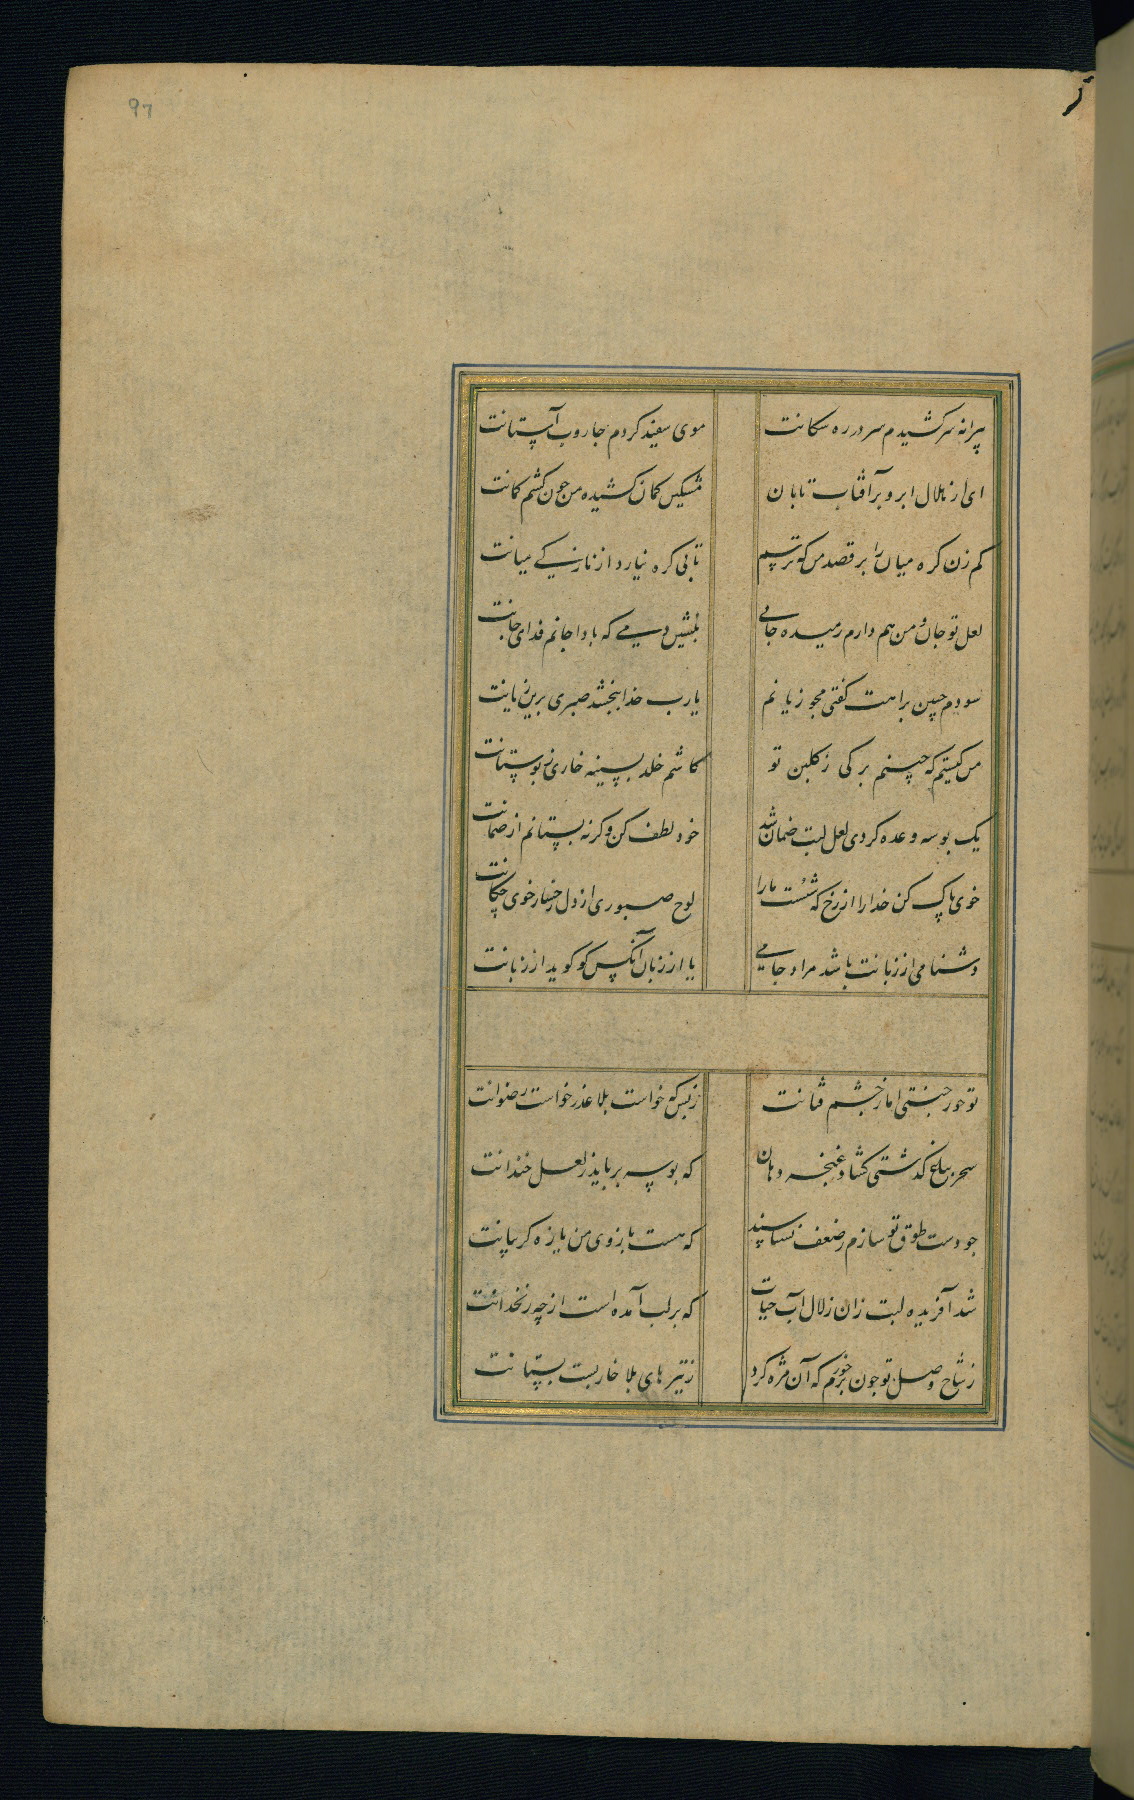 97
پیرانه سر کشیدم سر در ره سکانت موی سفید کردم جاروب آستانت
ای از هلال ابرو بر آفتاب تابان مشکین کمان کشیده من چون کشم کمانت
کم زن کره میان را بر قصد من که ترسم تابی کره نیارد از نازکی میانت
لعل تو جان و من هم دارم رمیده جانی بنشین دمی که بادا جانم فدای جانت
سودم جبین براهت کفتی مجو زیانم یارب خدا ببخشد صبری برین زیانت
من کیستم که چینم برکی ز کلبن تو کاشم خلد بسینه خاری ز بوستانت
یک بوسه وعده کردی لعل لبت ضمان شد خود لطف کن وکرنه بستانم از ضمانت
خوی پاک کن خدا را از رخ که شست ما را لوح صبوری از دل رخسار خوی چکانت
دشنامی از زبانت باشد مراد جامی یا از زبان آنکس کو کوید از زبانت
تو حور جنتی اما ز چشم فتانت ز بس که خواست بلا عذر خواست رضوانت
سحر بباغ کذشتی کشاد غنچه دهان که بوسه برباید ز لعل خندانت
جو دست طوق تو سازم ز ضعف نشناسند که هست بازوی من یا زه کریبانت
شد آفریده لبت زان زلال آب حیات که بر لب آمده است از چه زنخدانت
ز شاخ وصل تو جون برخورم که آن مژه کرد ز تیرهای بلا خاربست بستانت